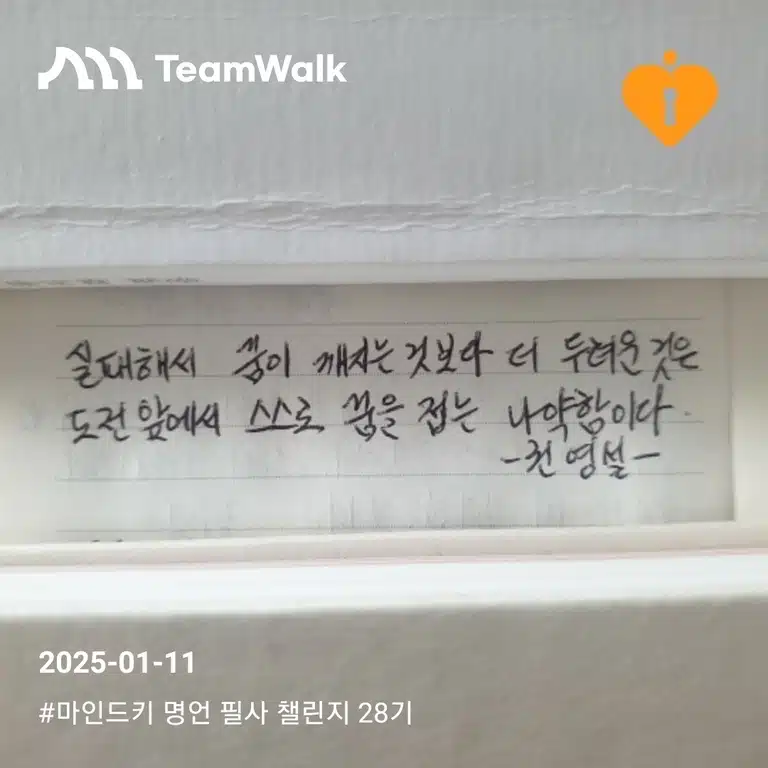 TeamWalk
실패해서 꿈이 깨지는 것보다 더 두려운 것은
도전 앞에서 스스로 꿈을 접는 나약함이다.
-권영설-
2025-01-11
#마인드키 명언 필사 챌린지 28기